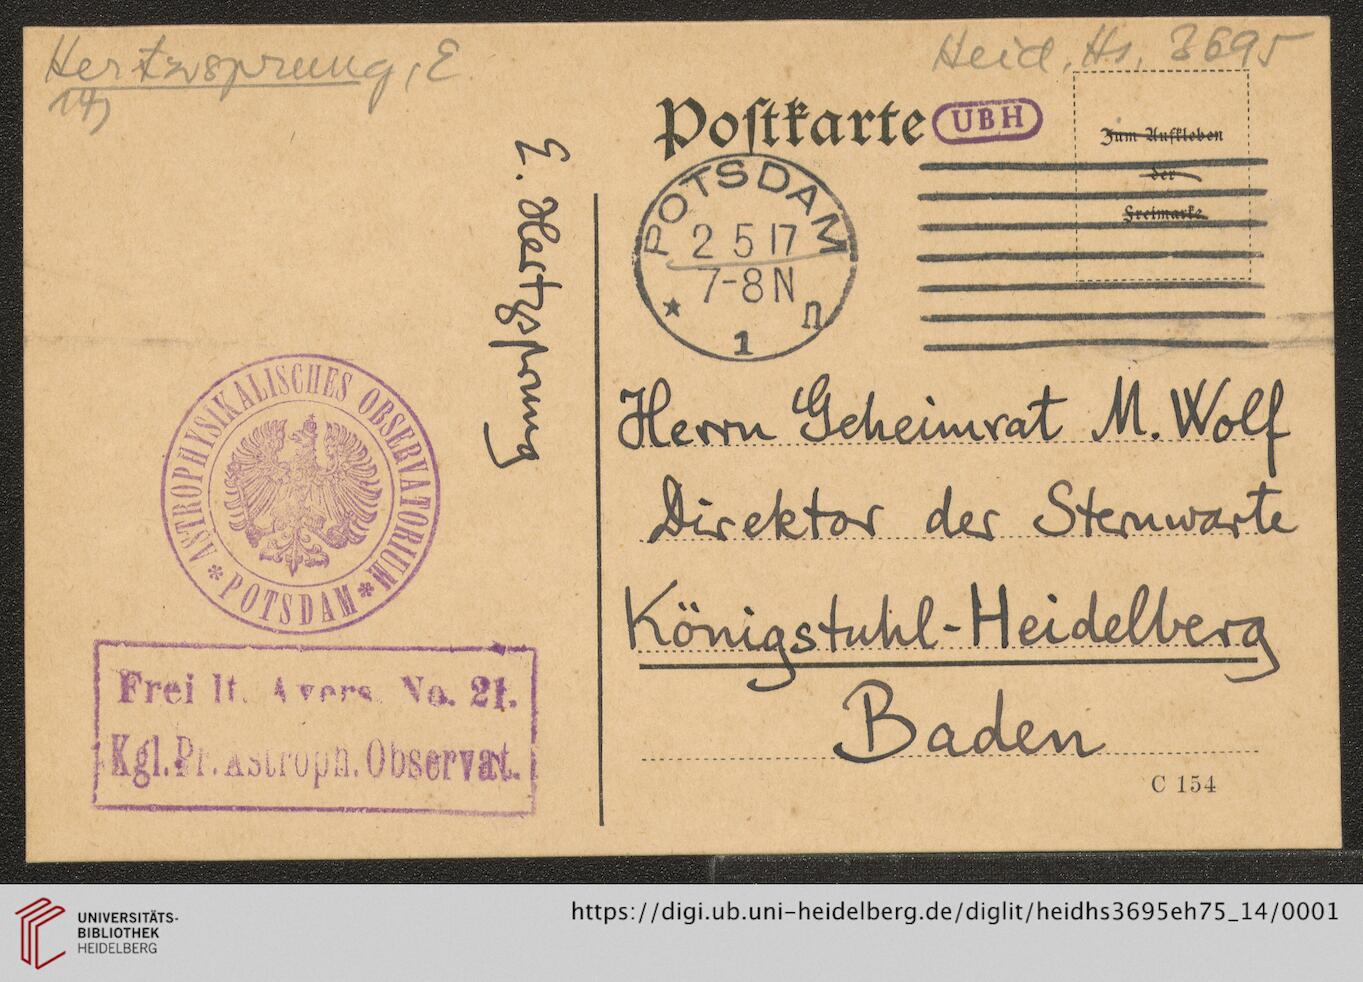 Hertzsprung, E.
14)
Heid. Hs. 3695
Postkarte
UBH
Zum Aufkleben
der
Freimarke
POTSDAM
2 5 17
7-8 N
* 1 n
E. Hertzsprung
ASTROPHYSIKALISCHES OBSERVATORIUM
* POTSDAM *
Frei lt. Avers. No. 21.
Kgl. Pr. Astroph. Observat.
Herrn Geheimrat M. Wolf
Direktor der Sternwarte
Königstuhl-Heidelberg
Baden
C 154
UNIVERSITÄTS-
BIBLIOTHEK
HEIDELBERG
https://digi.ub.uni-heidelberg.de/diglit/heidhs3695eh75_14/0001